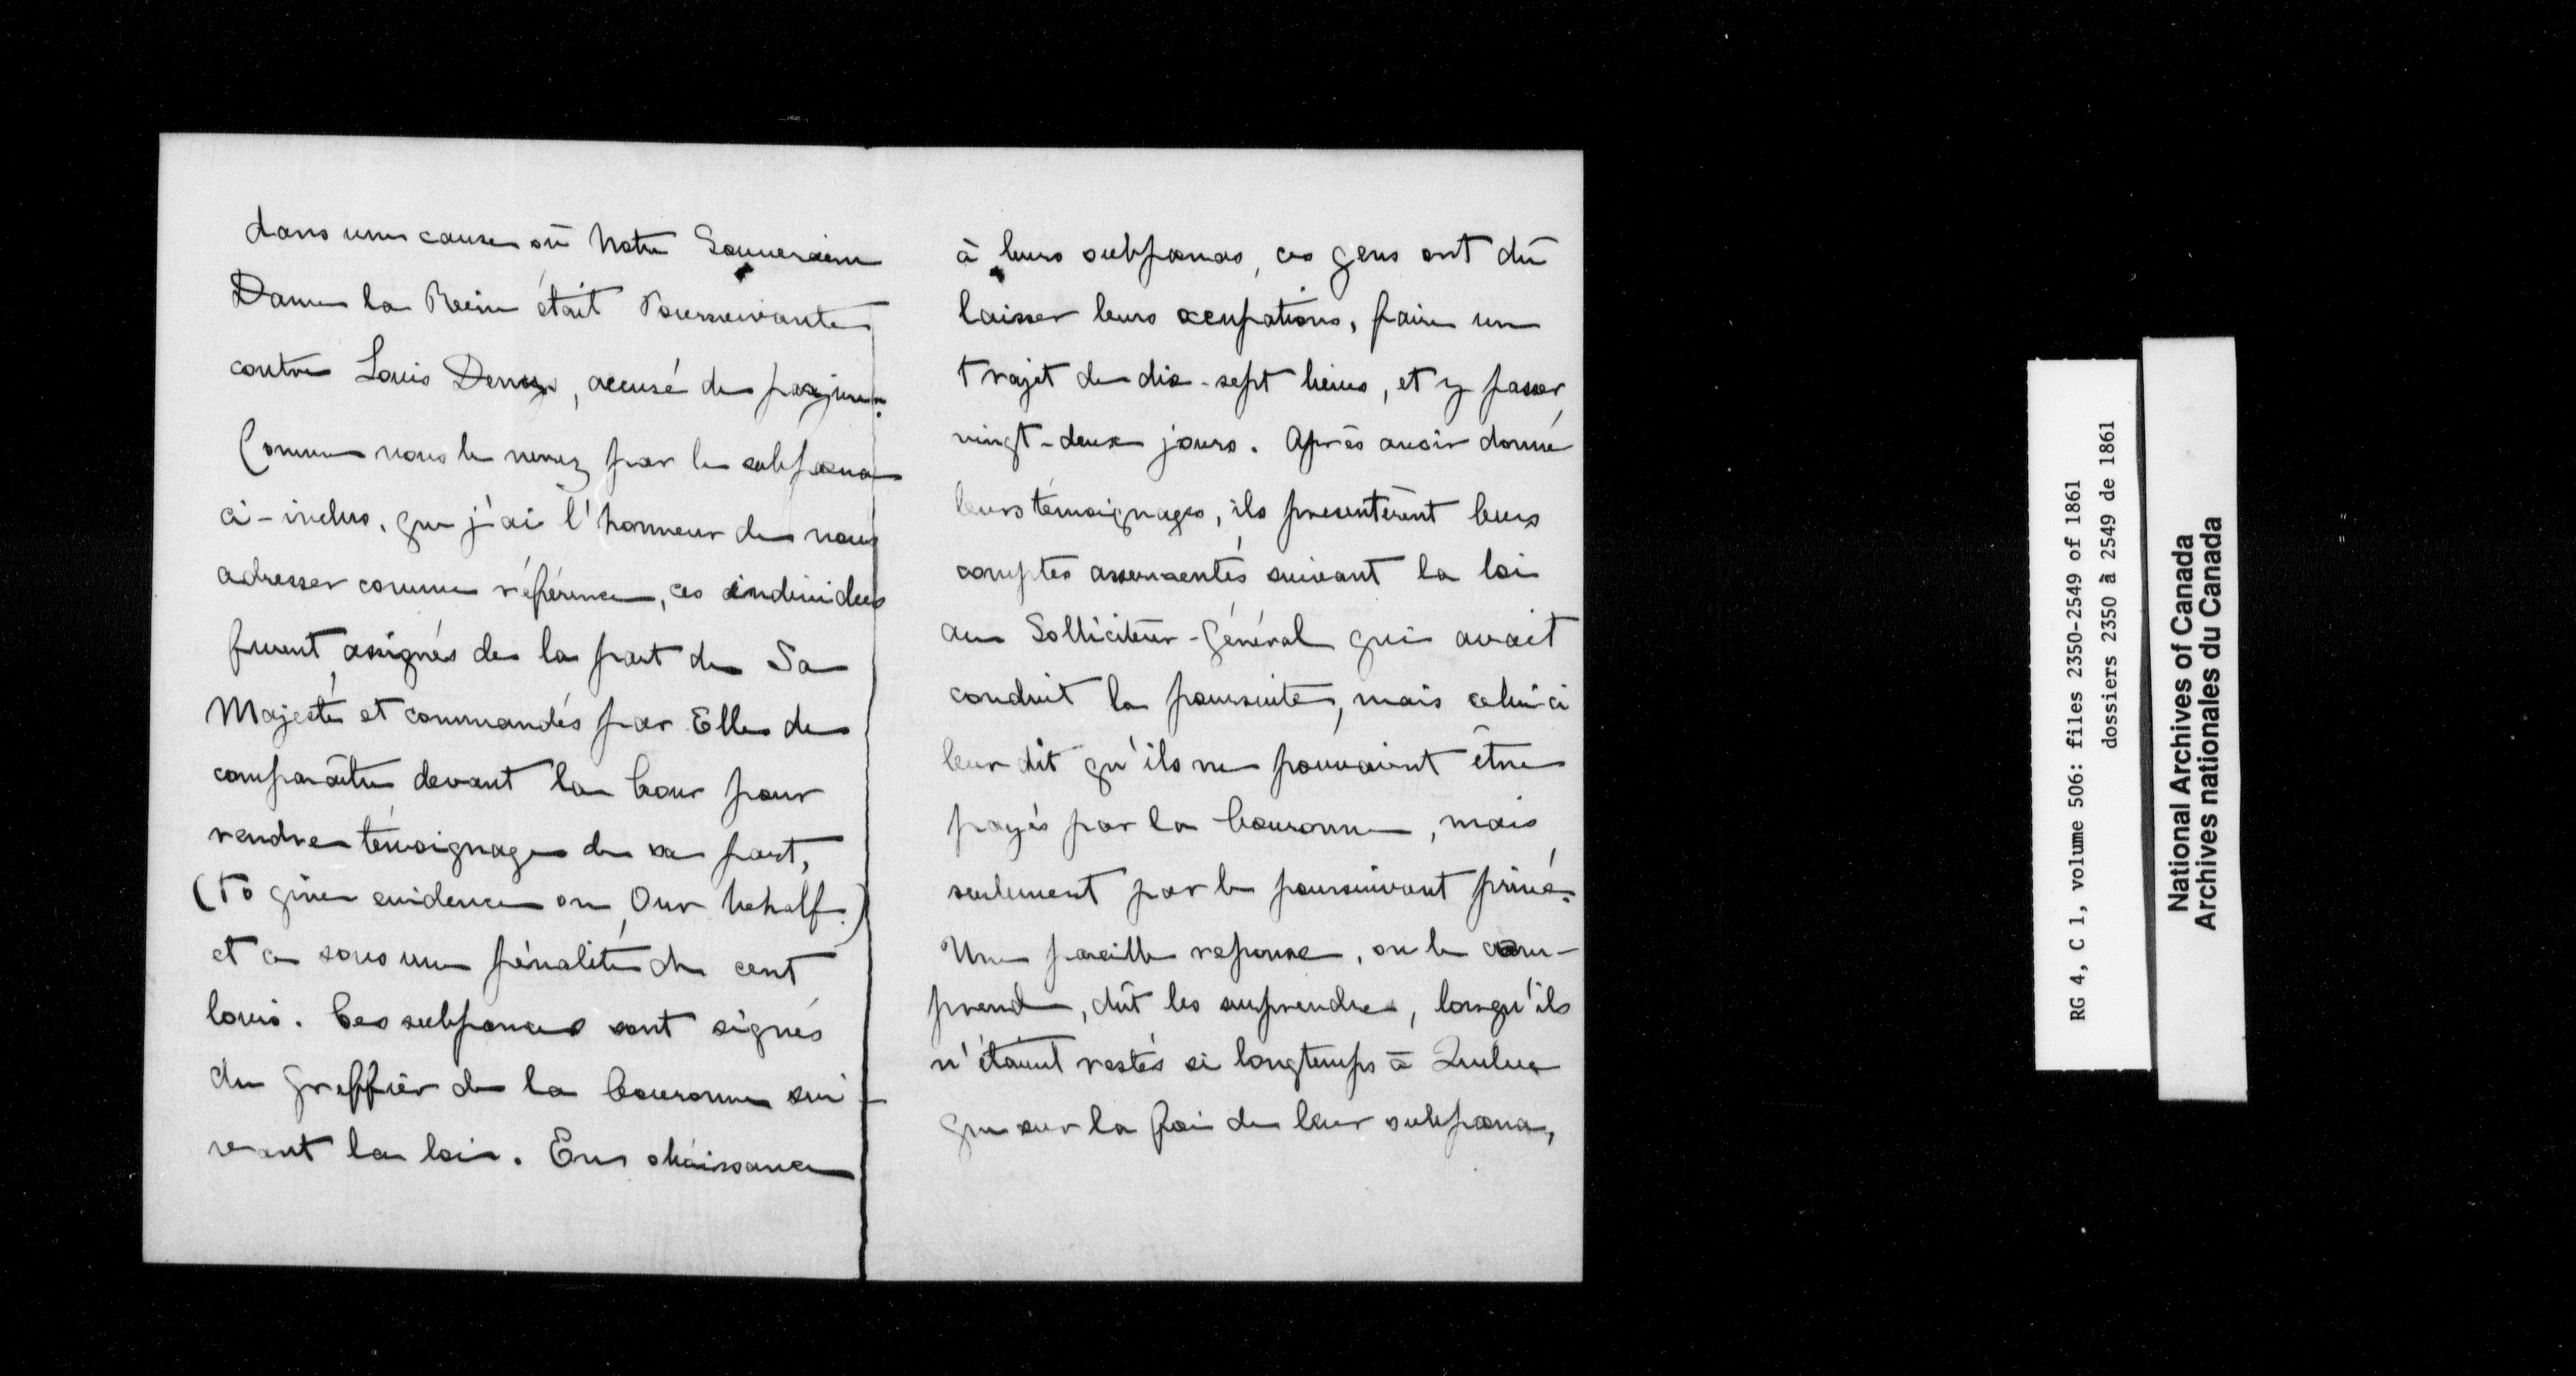 dans une cause où Notre Souveraine
Dame la Reine était Poursuivante
contre Louis Denys, accusé de parjure.
Comme vous le verrez par le subpoena
ci-inclus, que j'ai l'honneur de vous
adresser comme référence, ces individus
furent assignés de la part de Sa
Majesté et commandés par Elle de
comparaître devant la Cour pour
rendre témoignage de sa part,
(to give evidence on Our behalf.)
et ce sous une pénalité de cent
louis. Ces subpoenas sont signés
du Greffier de la Couronne sui-
vant la loi. En obéissance
à leurs subpoenas, ces gens ont dû
laisser leurs occupations, faire un
trajet de dix-sept lieues, et y passer
vingt-deux jours. Après avoir donné
leurs témoignages, ils presentèrent leurs
comptes assermentés suivant la loi
au Solliciteur-Général qui avait
conduit la poursuite, mais celui-ci
leur dit qu'ils ne pouvaient être
payés par la Couronne, mais
seulement par le poursuivant privé.
Une pareille reponse, on le com-
prend, dût les surprendre, lorsqu'ils
n'étaient restés si longtemps à Québec
que sur la foi de leur subpoena,
RG 4, C 1, volume 506: files 2350-2549 of 1861
dossiers 2350 à 2549 de 1861
National Archives of Canada
Archives nationales du Canada